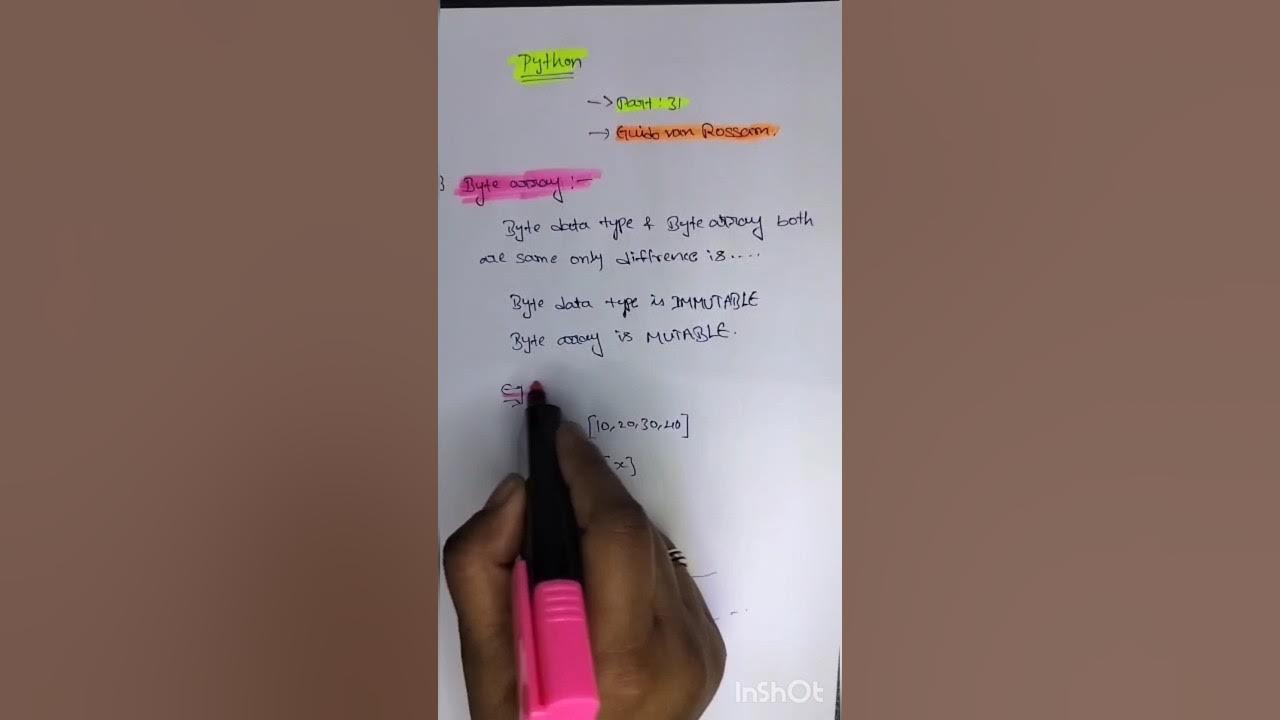 Python
-> Part: 31
-> Guido van Rossam.
3 Byte array :-
Byte data type & Byte array both
are same only diffrence is....
Byte data type is IMMUTABLE
Byte array is MUTABLE.
Eg
[10, 20, 30, 40]
[x]
InShOt